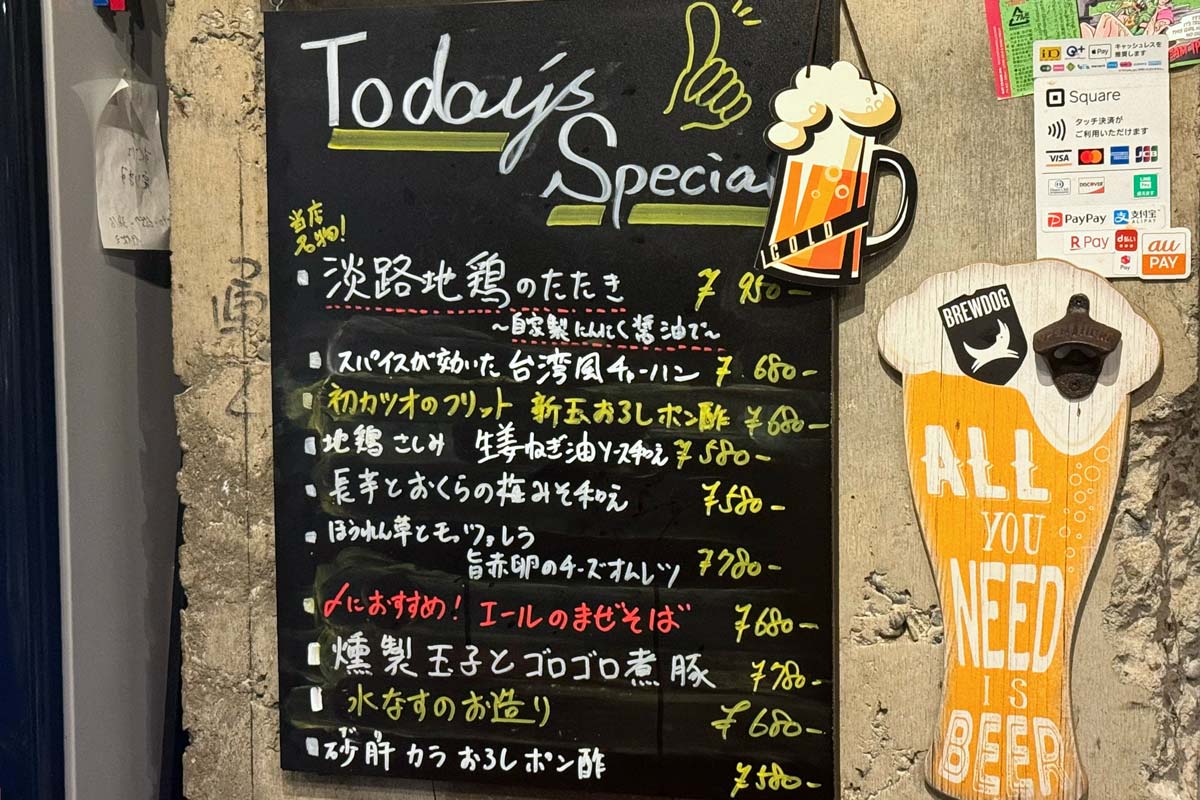 Today's
Special
当店
名物!
淡路地鶏のたたき ¥950-
～自家製にんにく醤油で～
スパイスが効いた 台湾風チャーハン ¥680-
初カツオのフリット 新玉おろしポン酢 ¥680-
地鶏さしみ 生姜ねぎ油ソース和え ¥580-
長芋とおくらの梅みそ和え ¥580-
ほうれん草とモッツァレラ
旨赤卵のチーズオムレツ ¥780-
〆におすすめ! エールのまぜそば ¥680-
燻製玉子とゴロゴロ煮豚 ¥780-
水なすのお造り ¥680-
砂肝カラ おろしポン酢 ¥580-
COLD
iD
Apple Pay
キャッシュレスを
推奨します
Square
タッチ決済が
ご利用いただけます
VISA
JCB
DISCOVER
LINE Pay
PayPay 支付宝 ALIPAY
R Pay d払い au PAY
Pay
BREWDOG
ALL
YOU
NEED
IS
BEER